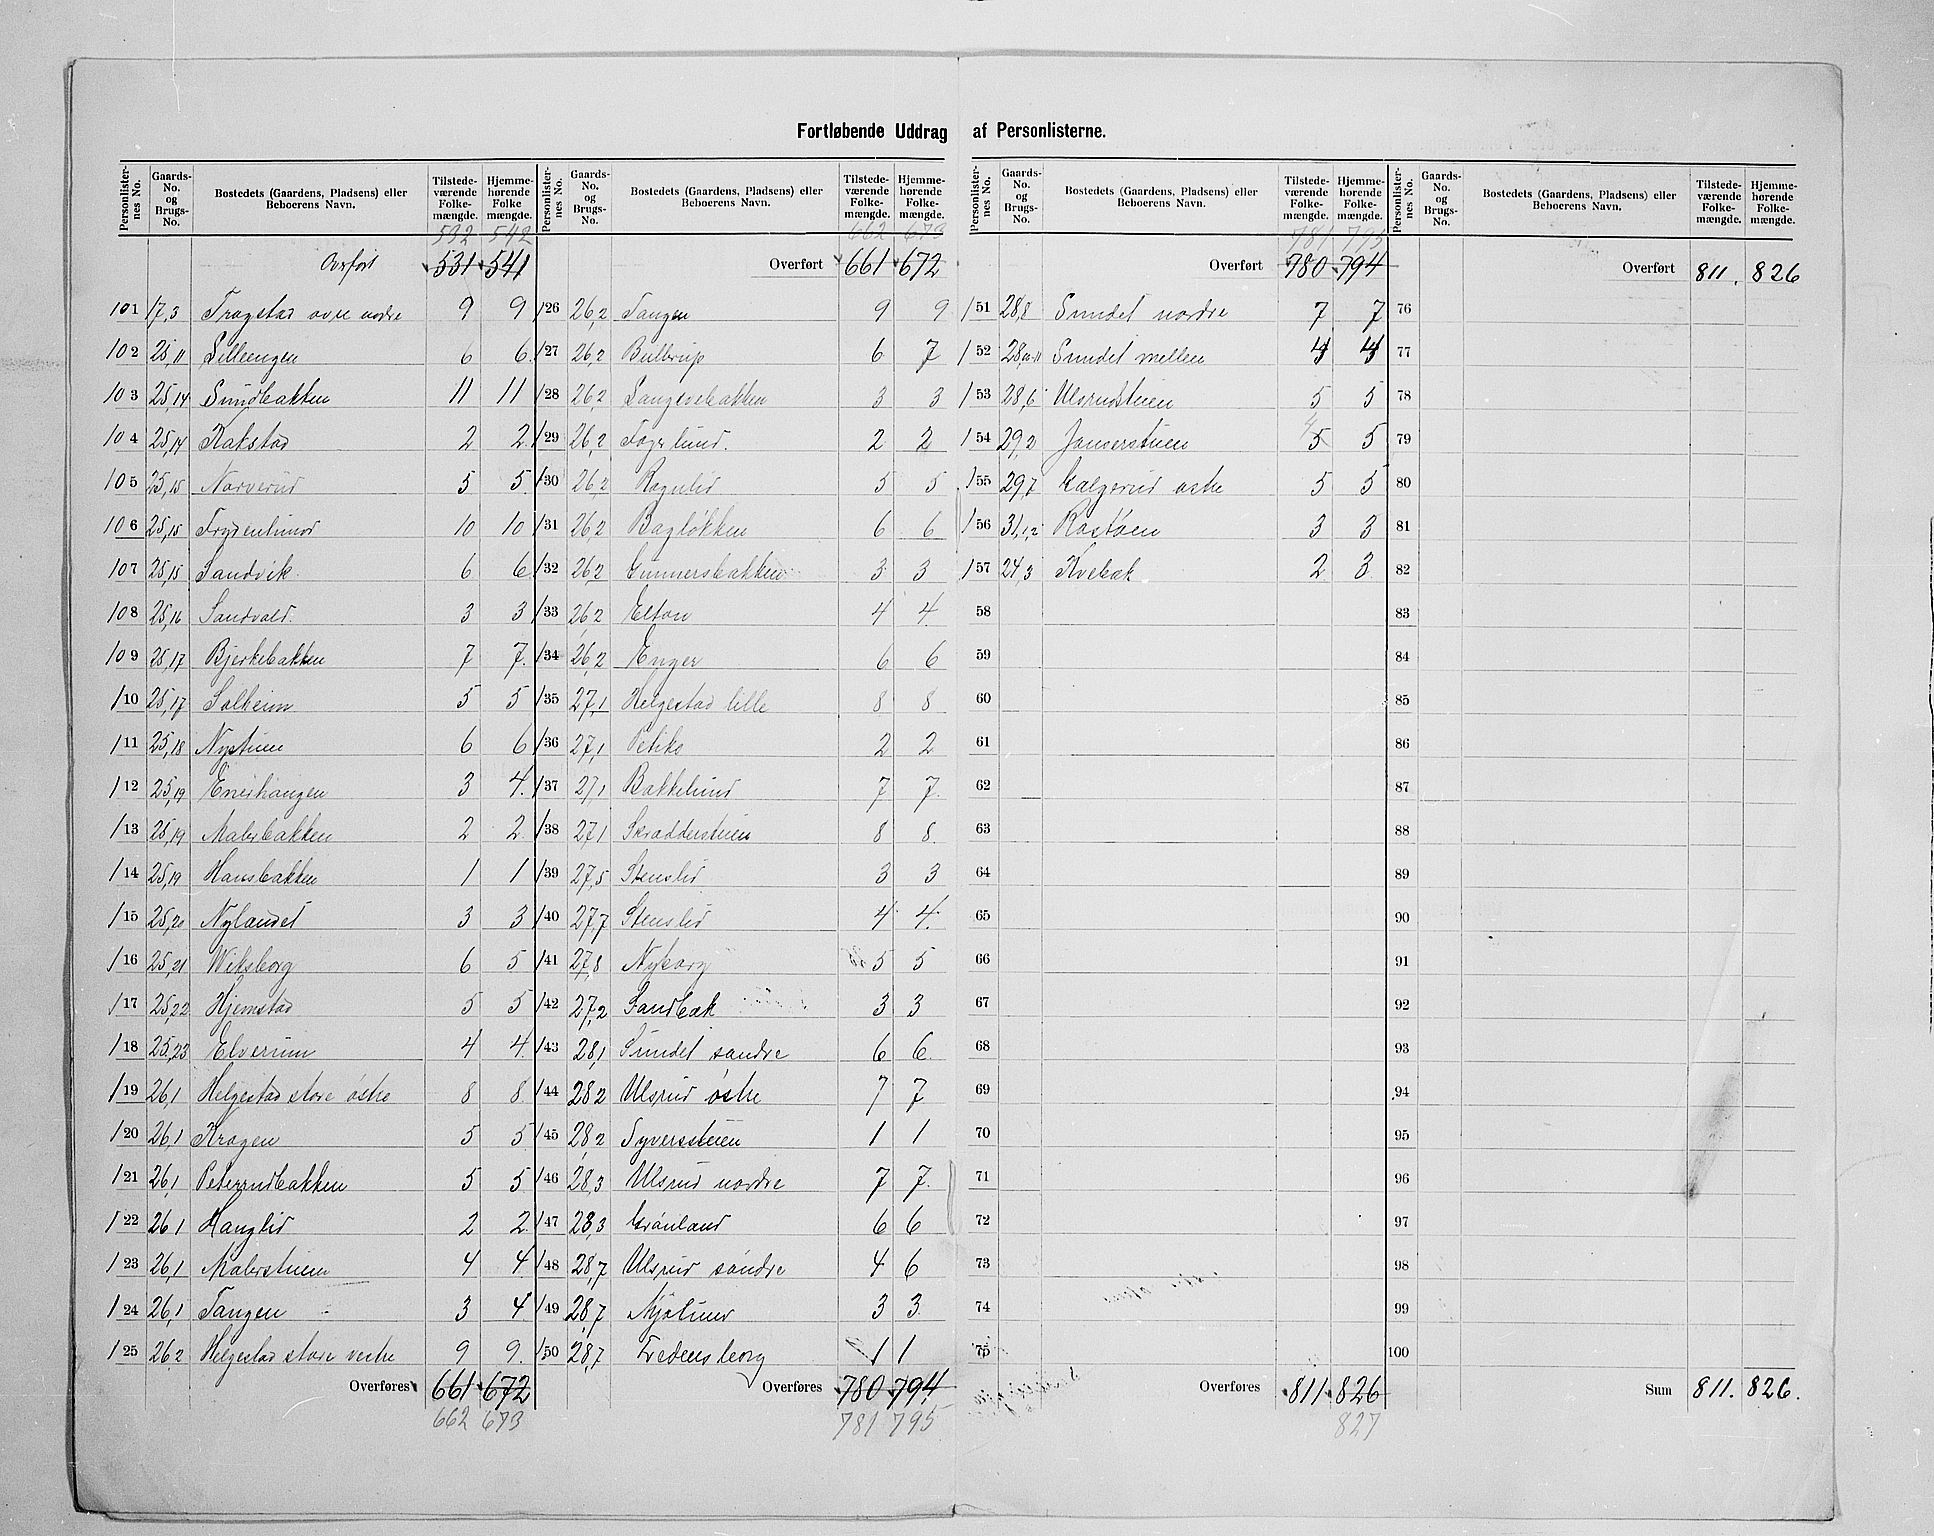 Fortløbende Uddrag af Personlisterne.
Personlisternes No. Gaards-No. og Brugs-No. Bostedets (Gaardens, Pladsens) eller Beboerens Navn. Tilstedeværende Folkemængde. Hjemmehørende Folkemængde.
532 542
Overført 531 541
101 17,3 Trøgstad øvre nordre 9 9
102 25,11 Lilleengen 6 6
103 25,14 Sundbakken 11 11
104 25,14 Rakstad 2 2
105 25,15 Narverud 5 5
106 25,15 Frydenlund 10 10
107 25,15 Sandvik 6 6
108 25,16 Sandvold 3 3
109 25,17 Bjerkebakken 7 7
110 25,17 Solheim 5 5
111 25,18 Nystuen 6 6
112 25,19 Enershaugen 3 4
113 25,19 Malerbakken 2 2
114 25,19 Hansbakken 1 1
115 25,20 Nylandet 3 3
116 25,21 Wiksborg 6 5
117 25,22 Hjemstad 5 5
118 25,23 Elverum 4 4
119 26,1 Helgestad store østre 8 8
120 26,1 Krogen 5 5
121 26,1 Peterrudbakken 5 5
122 26,1 Hauglid 2 2
123 26,1 Malerstuen 4 4
124 26,1 Tangen 3 4
125 26,2 Helgestad store vestre 9 9
Overføres 661 672
662 673
Personlisternes No. Gaards-No. og Brugs-No. Bostedets (Gaardens, Pladsens) eller Beboerens Navn. Tilstedeværende Folkemængde. Hjemmehørende Folkemængde.
662 673
Overført 661 672
126 26,2 Tangen 9 9
127 26,2 Bulbrup 6 7
128 26,2 Langevebakken 3 3
129 26,2 Fagerlund. 2 2
130 26,2 Rognlid 5 5
131 26,2 Bagløkken 6 6
132 26,2 Gunnersbakken 3 3
133 26,2 Elton 4 4
134 26,2 Enger 6 6
135 27,1 Helgestad lille 8 8
136 27,1 2 2
137 27,1 Bakkelund 7 7
138 27,1 Skradderstuen 8 8
139 27,5 Stenslid 3 3
140 27,7 Stenslid 4 4
141 27,8 Nyborg 5 5
142 27,2 Sandbak 3 3
143 28,1 Sundet søndre 6 6
144 28,2 Ulsrud østre 7 7
145 28,2 Syversstuen 1 1
146 28,3 Ulsrud nordre 7 7
147 28,3 Grønland 6 6
148 28,7 Ulsrud søndre 4 6
149 28,7 Mjølund 3 3
150 28,7 Fredensborg 1 1
Overføres 780 794
781 795
Personlisternes No. Gaards-No. og Brugs-No. Bostedets (Gaardens, Pladsens) eller Beboerens Navn. Tilstedeværende Folkemængde. Hjemmehørende Folkemængde.
781 795
Overført 780 794
151 28,8 Sundet nordre 7 7
152 28,10-11 Sundet mellem 4 4
153 28,6 Ulsrudstuen 5 5
154 29,2 Janserstuen 4 5 5
155 29,7 Galgerud østre 5 5
156 31,1,2 Rostøen 3 3
157 24,3 Kvebak 2 3
58
59
60
61
62
63
64
65
66
67
68
69
70
71
72
73
74
75
Overføres 811 826
827
Personlisternes No. Gaards-No. og Brugs-No. Bostedets (Gaardens, Pladsens) eller Beboerens Navn. Tilstedeværende Folkemængde. Hjemmehørende Folkemængde.
Overført 811. 826
76
77
78
79
80
81
82
83
84
85
86
87
88
89
90
91
92
93
94
95
96
97
98
99
100
Sum 811. 826.